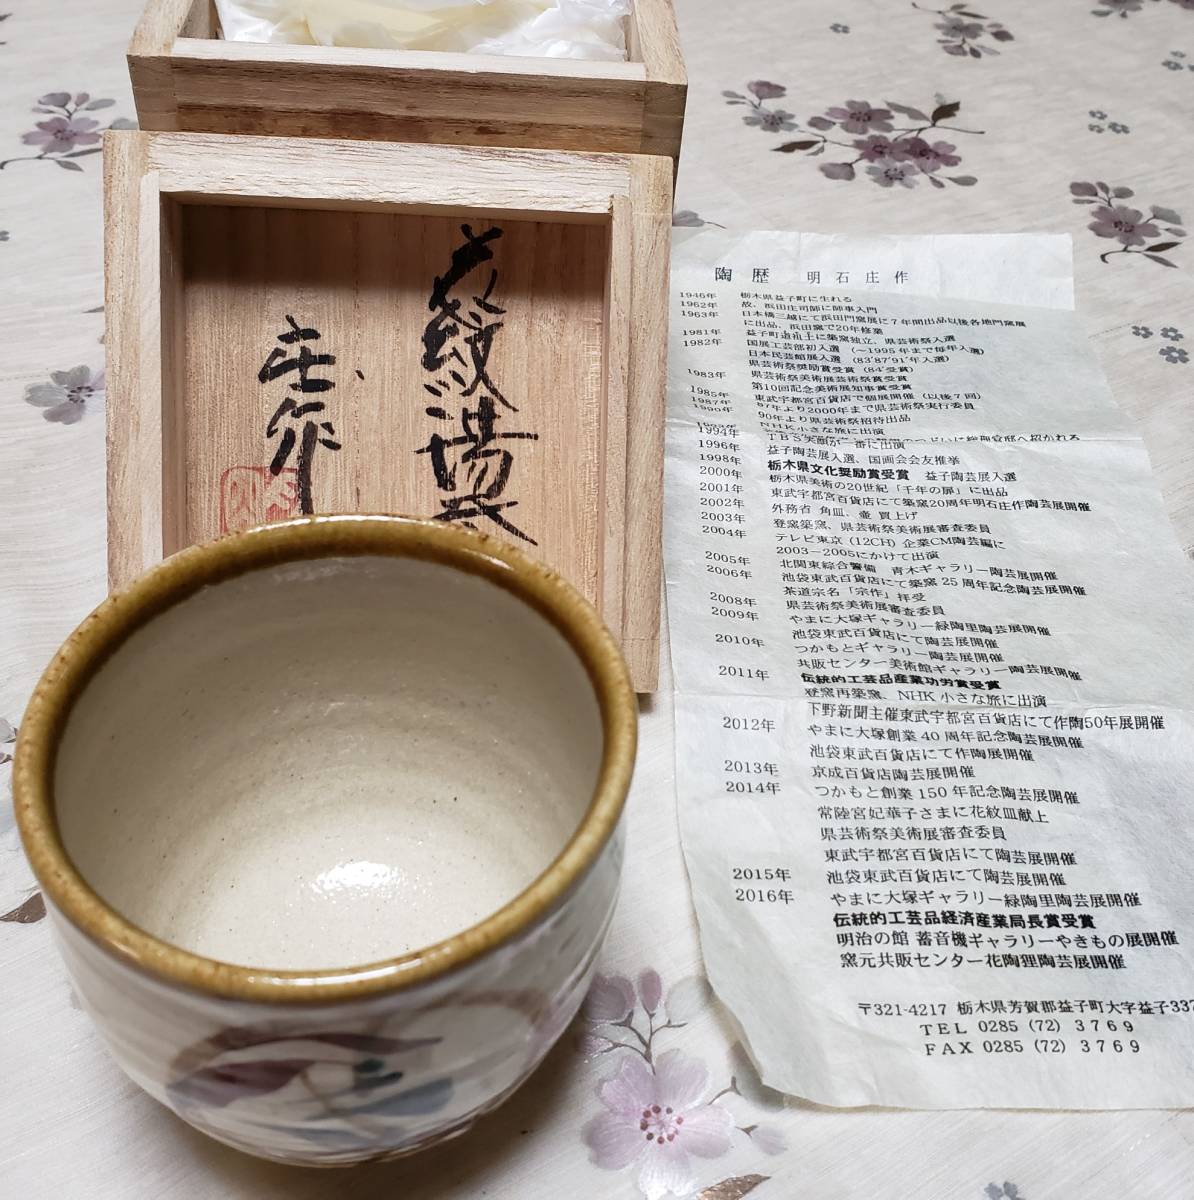 花紋湯呑
庄作
陶歴 明石庄作
1946年 栃木県益子町に生れる
1962年 故、浜田庄司師に師事入門
1963年 日本橋三越にて浜田門窯展に7年間出品以後各地門窯展
に出品、浜田窯で20年修業
1981年 益子町道祖土に築窯独立、県芸術祭入選
1982年 国展工芸部初入選 (〜1995年まで毎年入選)
日本民芸館展入選 (83'87'91'年入選)
県芸術祭奨励賞受賞 (84'受賞)
1983年 県芸術祭美術展芸術祭賞受賞
第10回記念美術展知事賞受賞
1985年 東武宇都宮百貨店で個展開催 (以後7回)
1987年 97年より2000年まで県芸術祭実行委員
1990年 90年より県芸術祭招待出品
NHK小さな旅に出演
1994年
1996年 益子陶芸展入選、国画会会友推挙
1998年 栃木県文化奨励賞受賞 益子陶芸展入選
2000年 栃木県美術の20世紀「千年の扉」に出品
2001年 東武宇都宮百貨店にて築窯20周年明石庄作陶芸展開催
2002年 外務省 角皿、壷 買上げ
2003年 登窯築窯、県芸術祭美術展審査委員
2004年 テレビ東京 (12CH) 企業CM陶芸編に
2003−2005にかけて出演
2005年 北関東綜合警備 青木ギャラリー陶芸展開催
2006年 池袋東武百貨店にて築窯25周年記念陶芸展開催
茶道宗名「宗作」拝受
2008年 県芸術祭美術展審査委員
2009年 やまに大塚ギャラリー緑陶里陶芸展開催
池袋東武百貨店にて陶芸展開催
2010年 つかもとギャラリー陶芸展開催
共販センター美術館ギャラリー陶芸展開催
2011年 伝統的工芸品産業功労賞受賞
登窯再築窯、NHK小さな旅に出演
下野新聞主催東武宇都宮百貨店にて作陶50年展開催
2012年 やまに大塚創業40周年記念陶芸展開催
池袋東武百貨店にて作陶展開催
2013年 京成百貨店陶芸展開催
2014年 つかもと創業150年記念陶芸展開催
常陸宮妃華子さまに花紋皿献上
県芸術祭美術展審査委員
東武宇都宮百貨店にて陶芸展開催
2015年 池袋東武百貨店にて陶芸展開催
2016年 やまに大塚ギャラリー緑陶里陶芸展開催
伝統的工芸品経済産業局長賞受賞
明治の館 蓄音機ギャラリーやきもの展開催
窯元共販センター花陶狸陶芸展開催
〒321-4217 栃木県芳賀郡益子町大字益子337
TEL 0285 (72) 3769
FAX 0285 (72) 3769